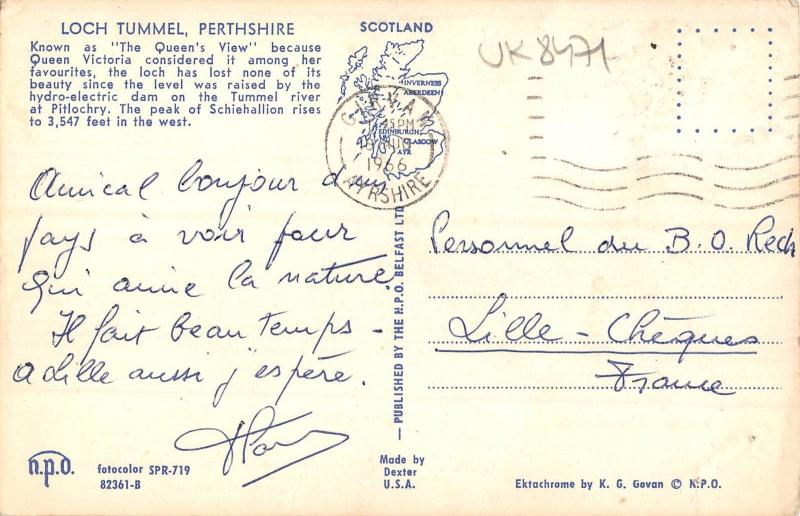 LOCH TUMMEL, PERTHSHIRE
Known as "The Queen's View" because
Queen Victoria considered it among her
favourites, the loch has lost none of its
beauty since the level was raised by the
hydro-electric dam on the Tummel river
at Pitlochry. The peak of Schiehallion rises
to 3,547 feet in the west.
SCOTLAND
INVERNESS
ABERDEEN
EDINBURGH
GLASGOW
AYR
GIRVAN
45 PM
1966
AYRSHIRE
UK8471
Amical bonjour d'un
pays à voir pour
qui aime la nature.
Il fait beau temps -
a Lille aussi j'espère.
Personnel du B.O. Rech
Lille - Chèques
France
PUBLISHED BY THE N.P.O. BELFAST LTD.
n.p.o.
fotocolor SPR-719
82361-B
Made by
Dexter
U.S.A.
Ektachrome by K. G. Govan © N.P.O.